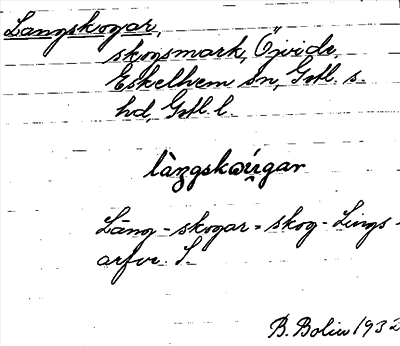 Langskogar,
skogsmark, Öjvide,
Eskelhem sn, Gotl. s.
hd, Gotl. l.
làŋgskωúgar
Lāng-skogar = skog-Lings-
arfve. S.
B. Bolin 1932